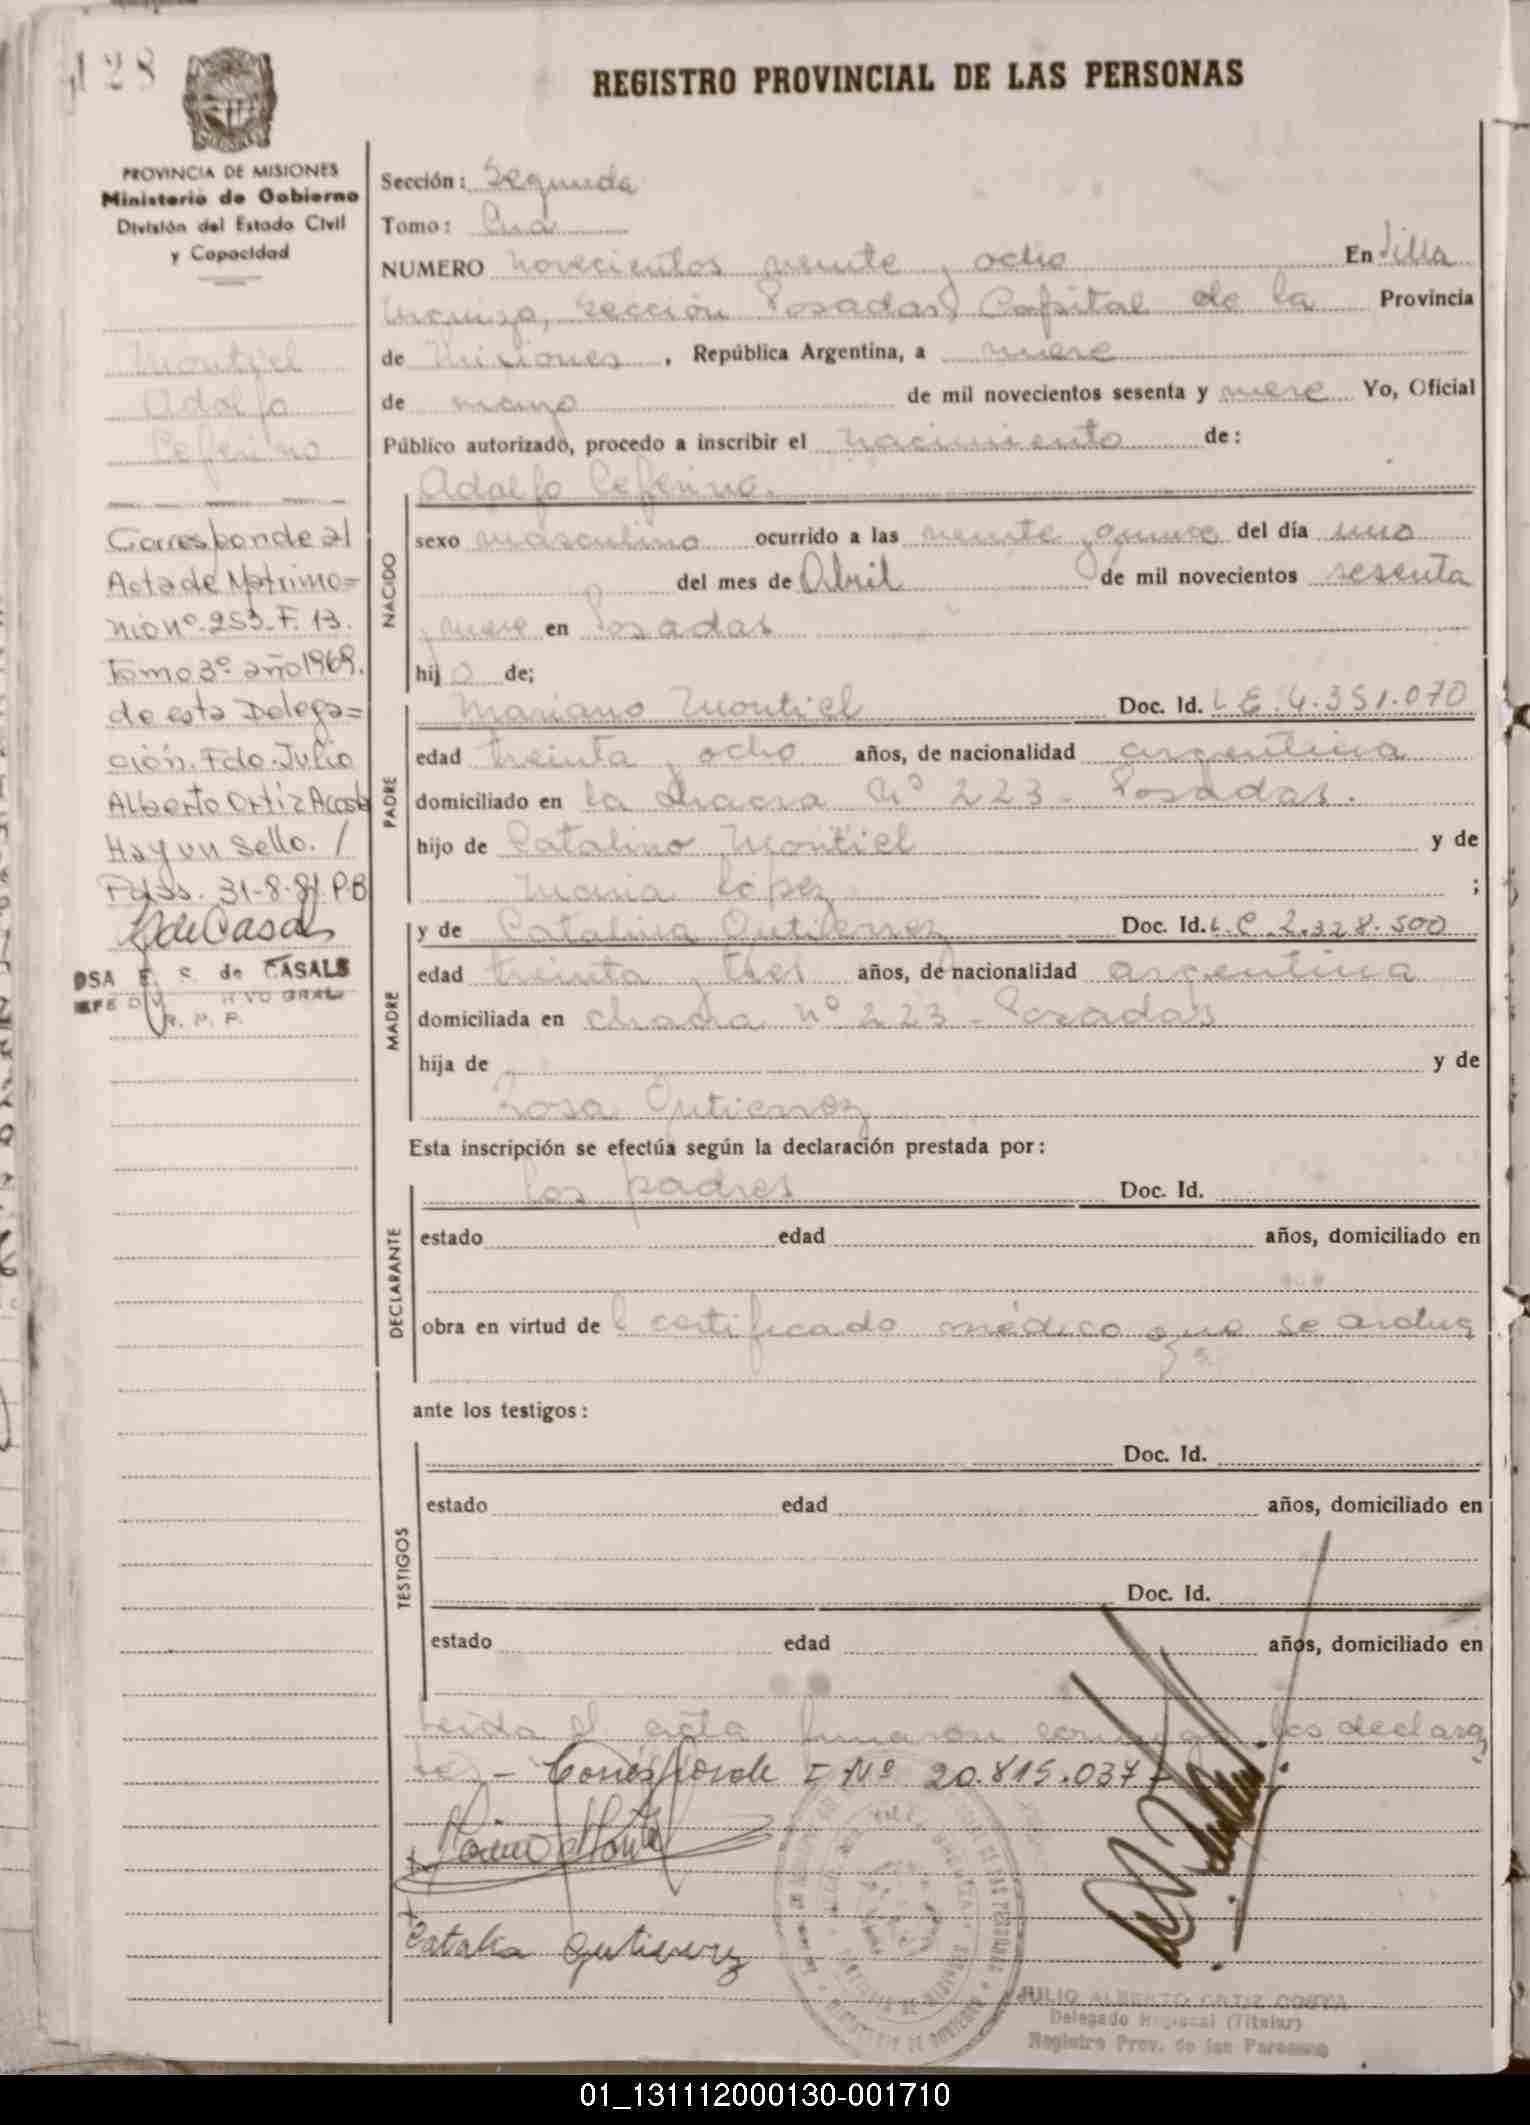 128
REGISTRO PROVINCIAL DE LAS PERSONAS
PROVINCIA DE MISIONES
Ministerio de Gobierno
División del Estado Civil
y Capacidad
Montiel
Adolfo
Ceferino
Corresponde al
Acta de Matrimo=
nio nº 253-F. 13.
Tomo 3º año 1969.
de esta Delega=
ción. Fdo. Julio
Alberto Ortiz Acosta
Hay un sello. /
Pdas. 31-8-81 P.B
de CASALS
R. P. P.
Sección: Segunda
Tomo:
NUMERO novecientos veinte y ocho En Villa
Urquiza, sección Posadas, Capital de la Provincia
de Misiones, República Argentina, a nueve
de mayo de mil novecientos sesenta y nueve Yo, Oficial
Público autorizado, procedo a inscribir el nacimiento de:
Adolfo Ceferino.
NACIDO
sexo masculino ocurrido a las veinte y quince del día uno
del mes de Abril de mil novecientos sesenta
y nueve en Posadas
hijo de;
PADRE
Mariano Montiel Doc. Id. L.E. 4.351.070
edad treinta y ocho años, de nacionalidad argentina
domiciliado en la chacra Nº 223 - Posadas.
hijo de Catalino Montiel y de
Maria López ;
MADRE
y de Catalina Gutierrez Doc. Id. L.C. 2.328.500
edad treinta y tres años, de nacionalidad argentina
domiciliada en chacra nº 223 - Posadas
hija de y de
Rosa Gutierrez
Esta inscripción se efectúa según la declaración prestada por:
DECLARANTE
los padres Doc. Id.
estado edad años, domiciliado en
obra en virtud de l certificado médico que se archiva
ante los testigos:
TESTIGOS
Doc. Id.
estado edad años, domiciliado en
Doc. Id.
estado edad años, domiciliado en
leida el acta firmaron conmigo los declaran
tes - Corresponde I Nº 20.815.037
Catalina Gutierrez
JULIO ALBERTO ORTIZ COSTA
Delegado Regional (Titular)
Registro Prov. de las Personas
01_131112000130-001710